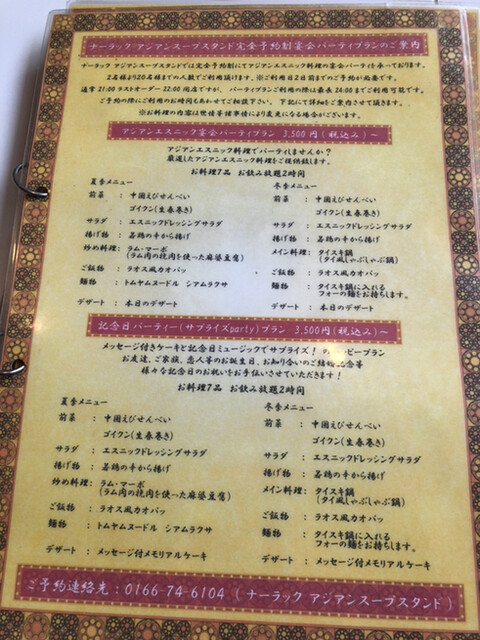 ナーラック アジアンスープスタンド完全予約制宴会パーティプランのご案内
ナーラック アジアンスープスタンドでは完全予約制にてアジアンエスニック料理の宴会パーティを承っております。
2名様より20名様までの人数でご利用頂けます。※ご利用日2日前までのご予約が必要です。
通常21:00ラストオーダー22:00閉店ですが、パーティプランご利用の際は最長24:00までご利用可能です。
ご予約の際にご利用のお時間もあわせてご相談下さい。下記にて詳細をご案内させて頂きます。
※お料理の内容は世情等諸事情により変更になる場合がございます。
アジアンエスニック宴会パーティプラン 3,500円(税込み)~
アジアンエスニック料理でパーティしませんか?
厳選したアジアンエスニック料理をご提供致します。
お料理7品 お飲み放題2時間
夏季メニュー
前菜 : 中国えびせんべい
ゴイクン(生春巻き)
サラダ : エスニックドレッシングサラダ
揚げ物 : 若鶏の辛から揚げ
炒め料理: ラム・マーボ
(ラム肉の挽肉を使った麻婆豆腐)
ご飯物 : ラオス風カオパッ
麺物 : トムヤムヌードル シアムラクサ
デザート : 本日のデザート
冬季メニュー
前菜 : 中国えびせんべい
ゴイクン(生春巻き)
サラダ : エスニックドレッシングサラダ
揚げ物 : 若鶏の辛から揚げ
メイン料理: タイスキ鍋
(タイ風しゃぶしゃぶ鍋)
ご飯物 : ラオス風カオパッ
麺物 : タイスキ鍋に入れる
フォーの麺をお持ちします。
デザート : 本日のデザート
記念日パーティー(サプライズparty)プラン 3,500円(税込み)~
メッセージ付きケーキと記念日ミュージックでサプライズ! の ッピープラン
お友達、ご家族、恋人等のお誕生日、お知り合いのご結婚記念等
様々な記念日のお祝いをお手伝いさせていただきます!
お料理7品 お飲み放題2時間
夏季メニュー
前菜 : 中国えびせんべい
ゴイクン(生春巻き)
サラダ : エスニックドレッシングサラダ
揚げ物 : 若鶏の辛から揚げ
炒め料理: ラム・マーボ
(ラム肉の挽肉を使った麻婆豆腐)
ご飯物 : ラオス風カオパッ
麺物 : トムヤムヌードル シアムラクサ
デザート : メッセージ付メモリアルケーキ
冬季メニュー
前菜 : 中国えびせんべい
ゴイクン(生春巻き)
サラダ : エスニックドレッシングサラダ
揚げ物 : 若鶏の辛から揚げ
メイン料理: タイスキ鍋
(タイ風しゃぶしゃぶ鍋)
ご飯物 : ラオス風カオパッ
麺物 : タイスキ鍋に入れる
フォーの麺をお持ちします。
デザート : メッセージ付メモリアルケーキ
ご予約連絡先:0166-74-6104 (ナーラック アジアンスープスタンド)